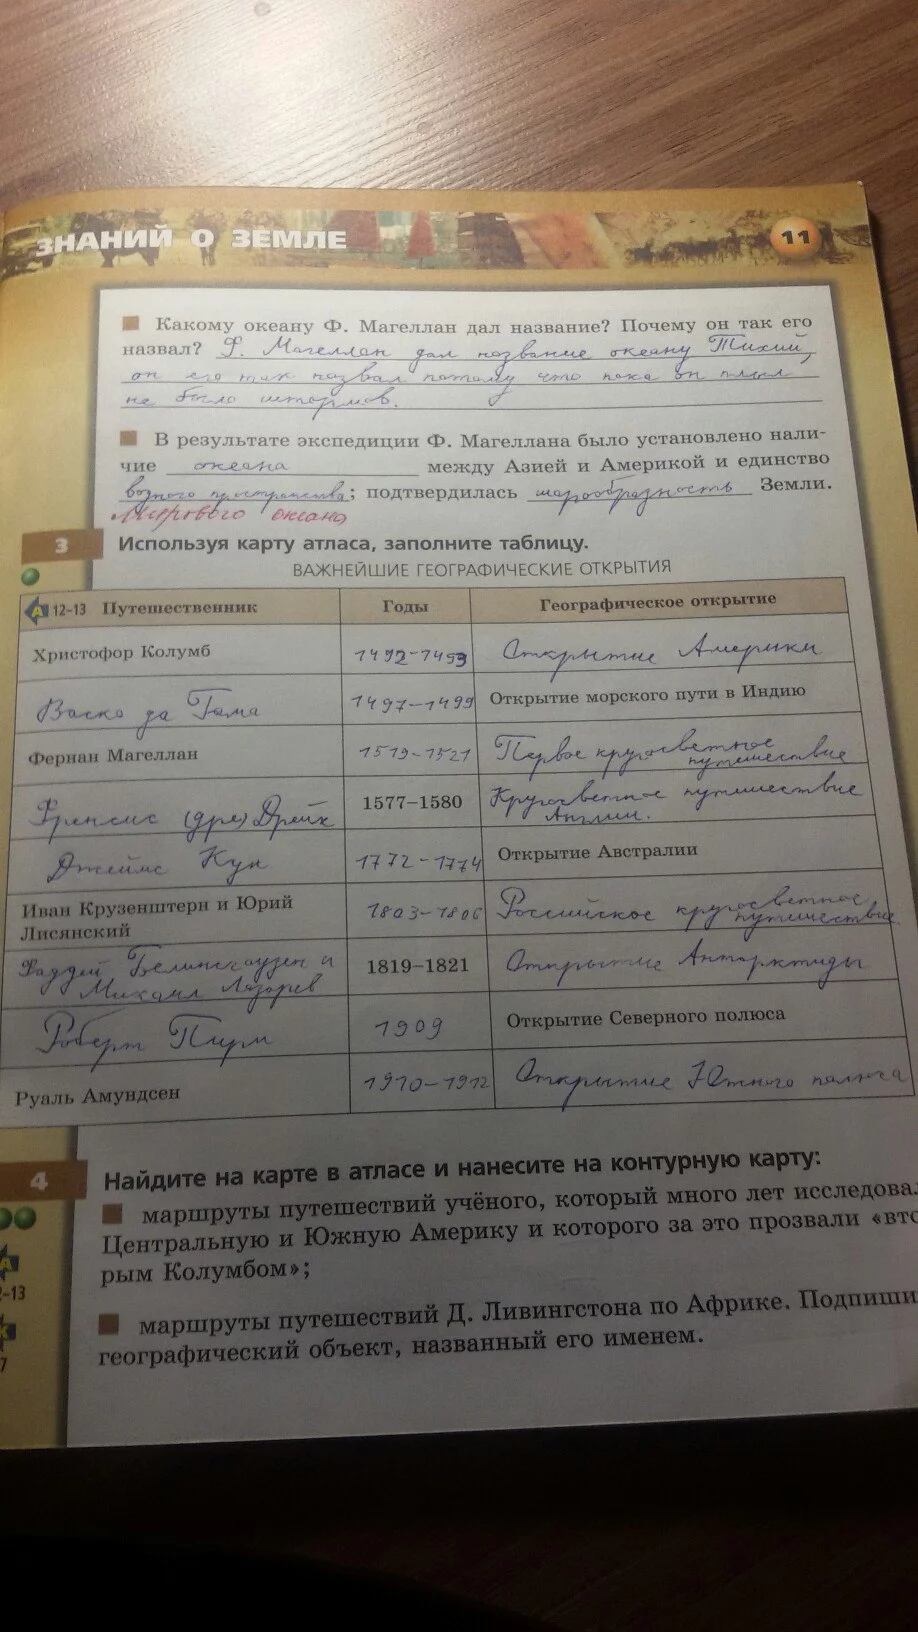 ЗНАНИЙ О ЗЕМЛЕ
11
Какому океану Ф. Магеллан дал название? Почему он так его
назвал? Ф. Магеллан дал название океану Тихий,
он его так назвал потому что пока он плыл
не было штормов.
В результате экспедиции Ф. Магеллана было установлено нали-
чие океана между Азией и Америкой и единство
водного пространства; подтвердилась шарообразность Земли.
Мирового океана
3 Используя карту атласа, заполните таблицу.
ВАЖНЕЙШИЕ ГЕОГРАФИЧЕСКИЕ ОТКРЫТИЯ
А 12–13 Путешественник Годы Географическое открытие
Христофор Колумб 1492-1493 Открытие Америки
Васко да Гама 1497-1499 Открытие морского пути в Индию
Фернан Магеллан 1519-1521 Первое кругосветное
путешествие
Френсис (дре) Дрейк 1577–1580 Кругосветное путешествие
Англии.
Джеймс Кук 1772-1774 Открытие Австралии
Иван Крузенштерн и Юрий
Лисянский 1803-1806 Российское кругосветное
путешествие
Фаддей Белинсгаузен и
Михаил Лазарев 1819–1821 Открытие Антарктиды
Роберт Пири 1909 Открытие Северного полюса
Руаль Амундсен 1910-1912 Открытие Южного полюса
4 Найдите на карте в атласе и нанесите на контурную карту:
маршруты путешествий учёного, который много лет исследовал
Центральную и Южную Америку и которого за это прозвали «вто
рым Колумбом»;
А
2–13
маршруты путешествий Д. Ливингстона по Африке. Подпиши
К
7
географический объект, названный его именем.